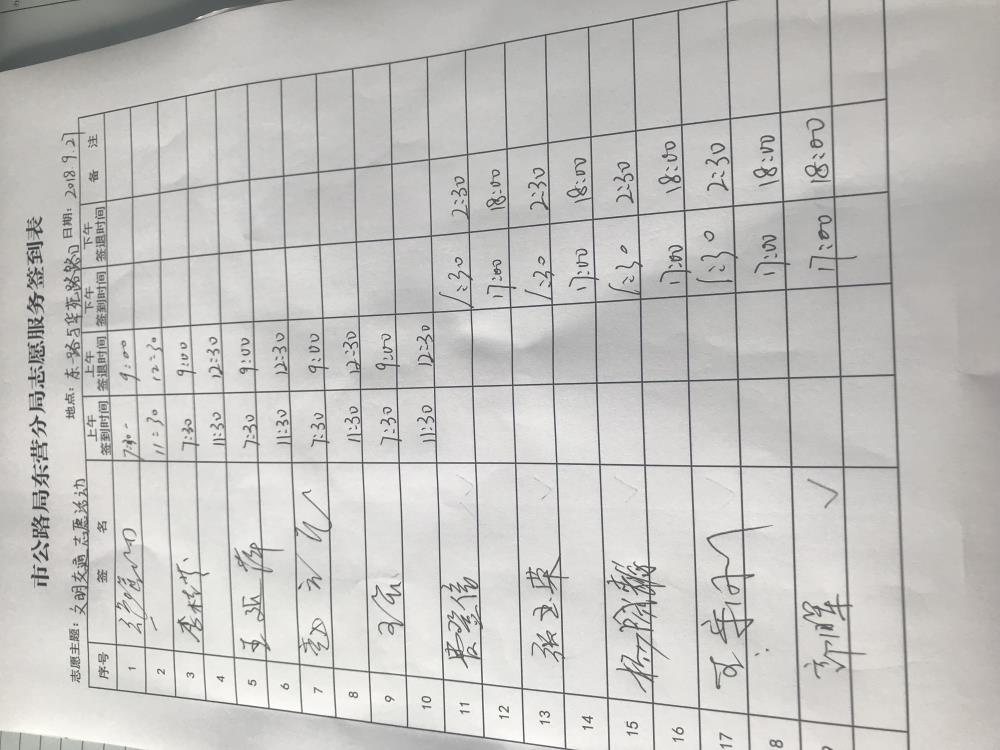 市公路局东营分局志愿服务签到表
志愿主题：文明交通 志愿活动 地点：东一路与华苑路路口 日期：2018.9.21
序号 签 名 上午签到时间 上午签退时间 下午签到时间 下午签退时间 备 注
1 7:30 9:00
2 11:30 12:30
3 7:30 9:00
4 11:30 12:30
5 王亚萍 7:30 9:00
6 11:30 12:30
7 7:30 9:00
8 11:30 12:30
9 7:30 9:00
10 11:30 12:30
11 1:30 2:30
12 17:00 18:00
13 张玉英 1:30 2:30
14 17:00 18:00
15 1:30 2:30
16 17:00 18:00
17 1:30 2:30
8 17:00 18:00
郭晖 17:00 18:00